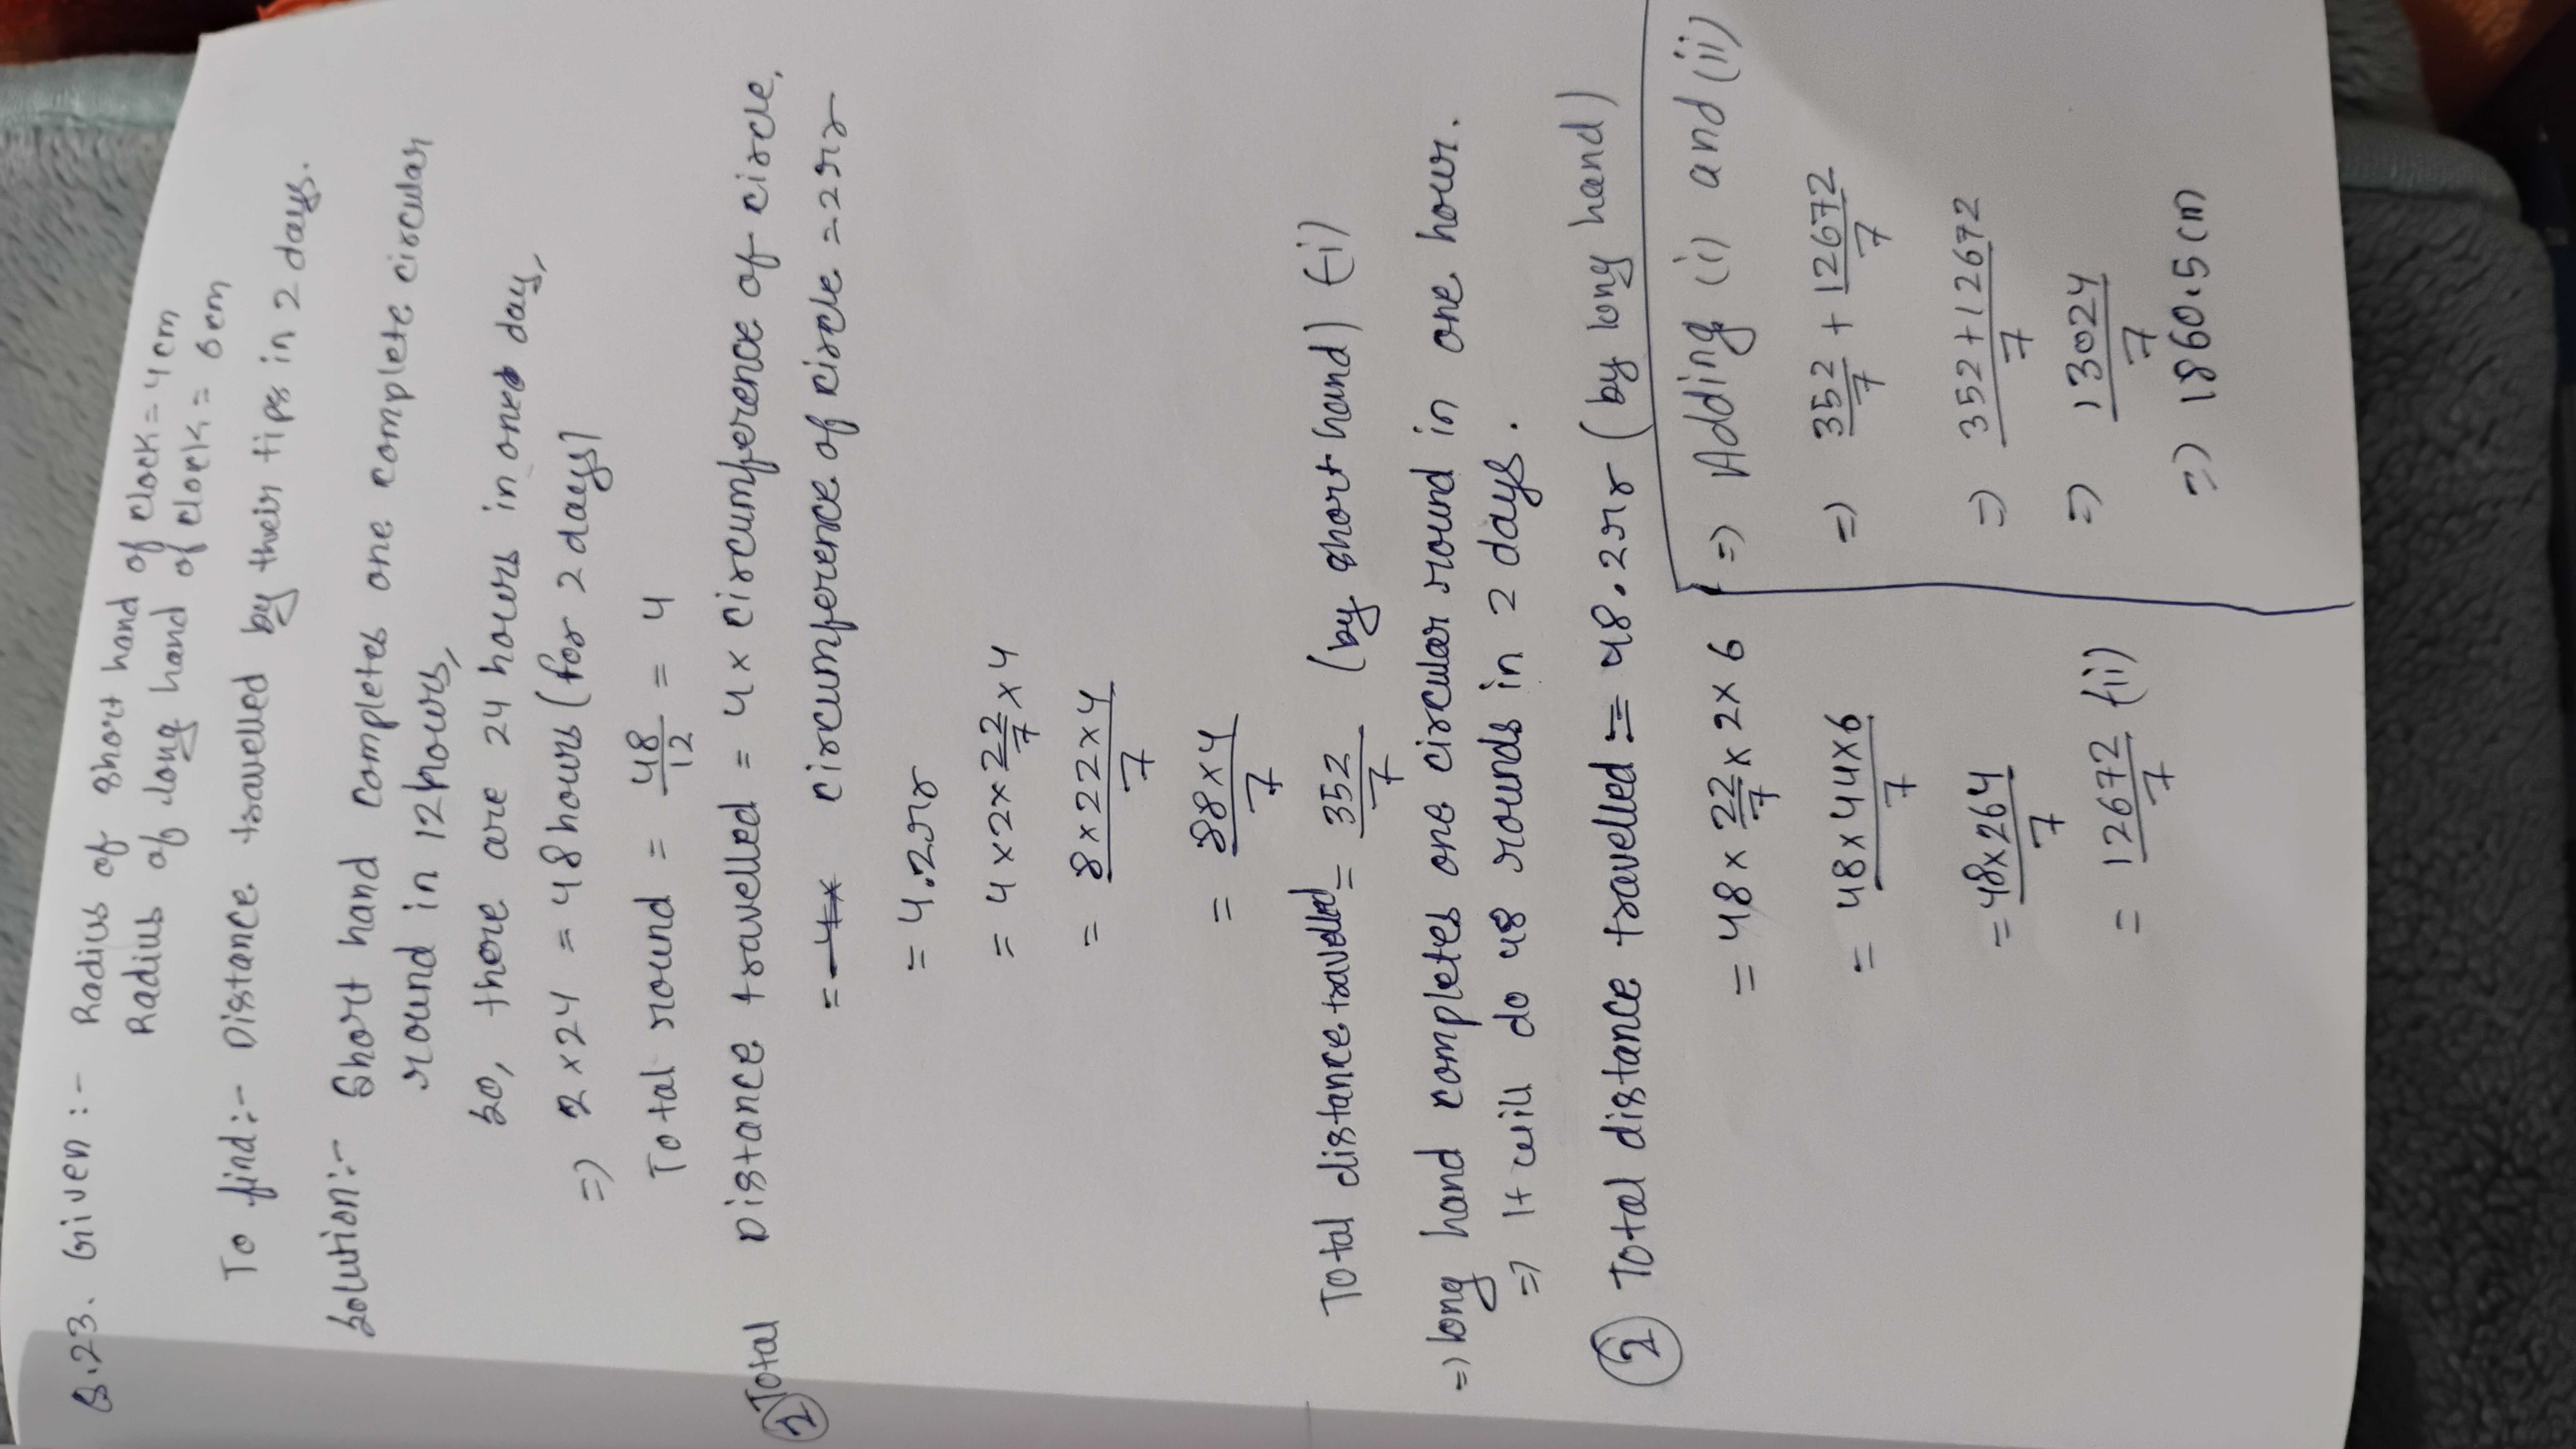 Q.23. Given :- Radius of short hand of clock = 4 cm
Radius of long hand of clock = 6 cm
To find:- Distance travelled by their tips in 2 days.
Solution:- Short hand completes one complete circular
round in 12 hours,
so, there are 24 hours in one day,
=> 2 × 24 = 48 hours (for 2 days)
Total round = 48/12 = 4
① Total Distance travelled = 4 × circumference of circle,
= 4× circumference of circle = 2πr
= 4.2πr
= 4 × 2 × 22/7 × 4
= 8 × 22 × 4/7
= 88 × 4/7
Total distance travelled = 352/7 (by short hand) (i)
=> long hand completes one circular round in one hour.
=> It will do 48 rounds in 2 days.
② Total distance travelled = 48.2πr (by long hand)
= 48 × 22/7 × 2 × 6
= 48 × 44 × 6/7
= 48 × 264/7
= 12672/7 (ii)
=> Adding (i) and (ii)
=> 352/7 + 12672/7
=> 352 + 12672/7
=> 13024/7
=> 1860.5 cm